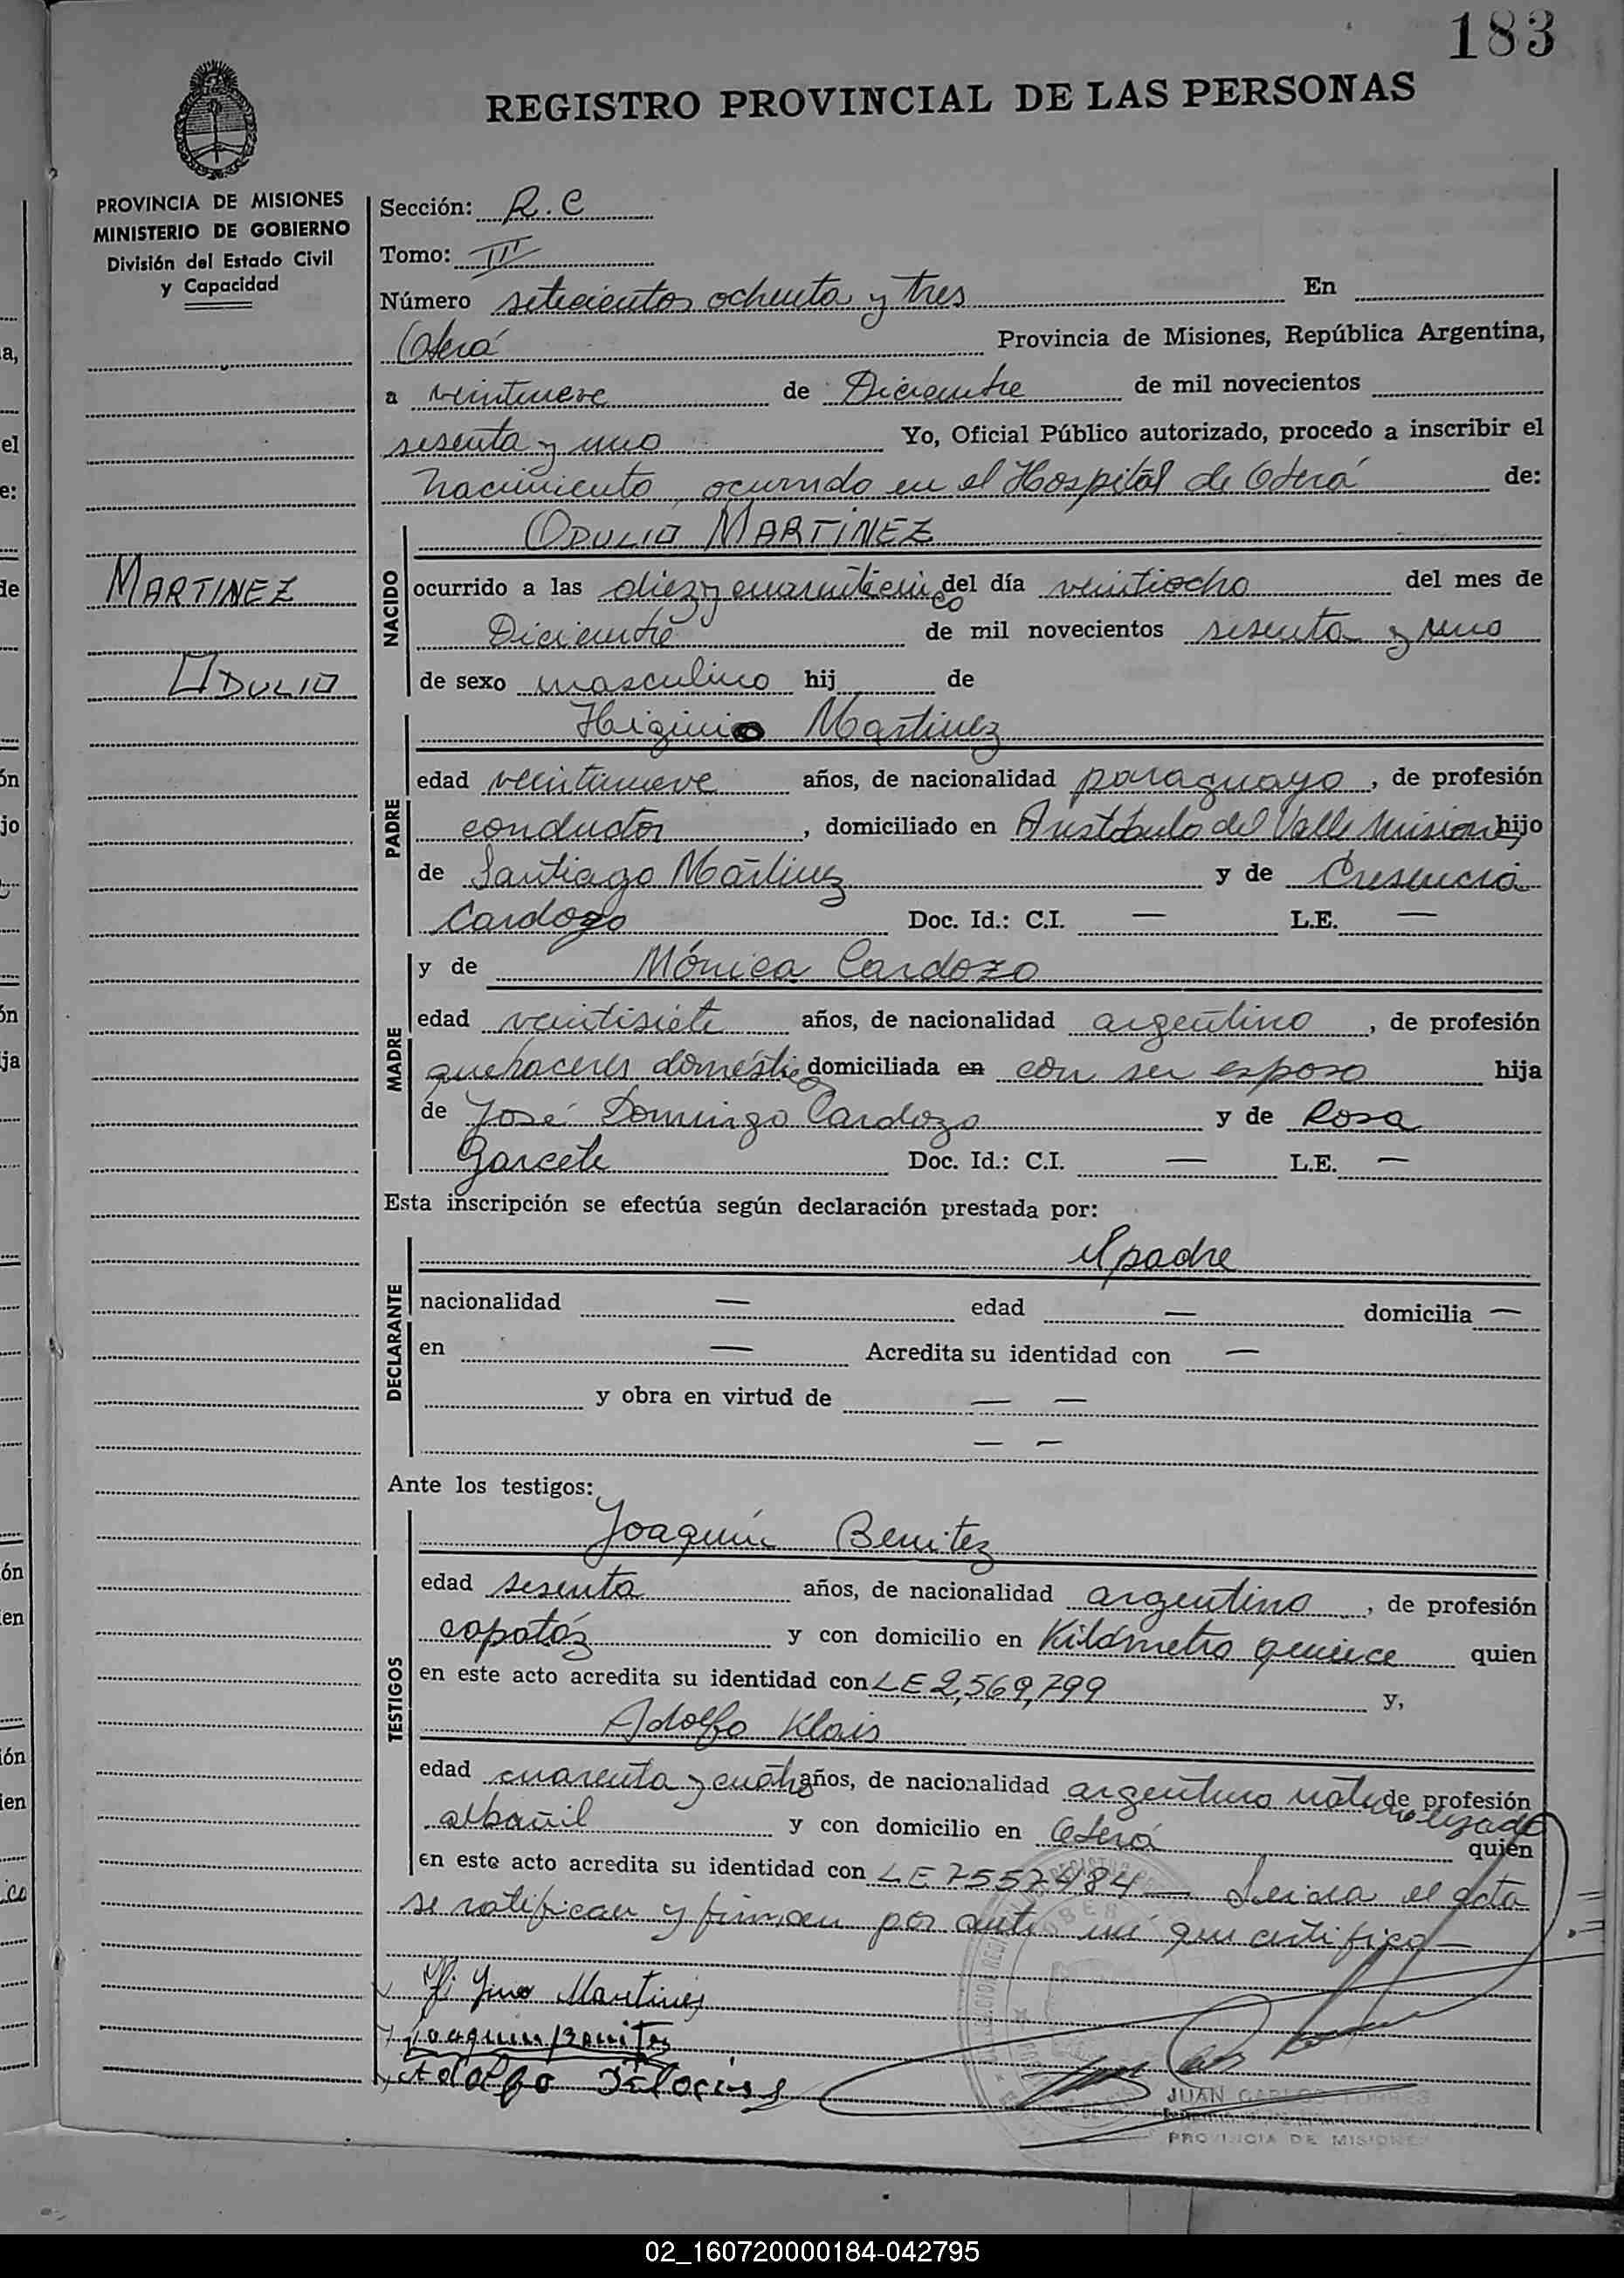 183
REGISTRO PROVINCIAL DE LAS PERSONAS
PROVINCIA DE MISIONES
MINISTERIO DE GOBIERNO
División del Estado Civil
y Capacidad
MARTINEZ
ODULIO
Sección: R.C
Tomo: III
Número setecientos ochenta y tres En
Oberá Provincia de Misiones, República Argentina,
a veintinueve de Diciembre de mil novecientos
sesenta y uno Yo, Oficial Público autorizado, procedo a inscribir el
nacimiento, ocurrido en el Hospital de Oberá de:
NACIDO
ODULIO MARTINEZ
ocurrido a las diez y cuarenticinco del día veintiocho del mes de
Diciembre de mil novecientos sesenta y uno
de sexo masculino hij de
PADRE
Higinio Martinez
edad veintinueve años, de nacionalidad paraguayo, de profesión
conductor, domiciliado en Aristóbulo del Valle Misiones hijo
de Santiago Martinez y de Cresencia
Cardozo Doc. Id.: C.I. — L.E. —
MADRE
y de Mónica Cardozo
edad veintisiete años, de nacionalidad argentino, de profesión
quehaceres domésticos domiciliada en con su esposo hija
de José Domingo Cardozo y de Rosa
Garcete Doc. Id.: C.I. — L.E. —
Esta inscripción se efectúa según declaración prestada por:
DECLARANTE
el padre
nacionalidad — edad — domicilia —
en — Acredita su identidad con —
y obra en virtud de — —
— —
Ante los testigos:
TESTIGOS
Joaquín Benitez
edad sesenta años, de nacionalidad argentino, de profesión
capatáz y con domicilio en Kilómetro quince quien
en este acto acredita su identidad con LE 2,569,799 y,
Adolfo Klais
edad cuarenta y cuatro años, de nacionalidad argentino naturalizado de profesión
albañil y con domicilio en Oberá quien
en este acto acredita su identidad con LE 7557484 — Leida el acta
se ratifican y firman por ante mí que certifico —
Hi Jino Martinez
Joaquin Benites
Adolfo
JUAN CARLOS TORRES
PROVINCIA DE MISIONES
02_160720000184-042795